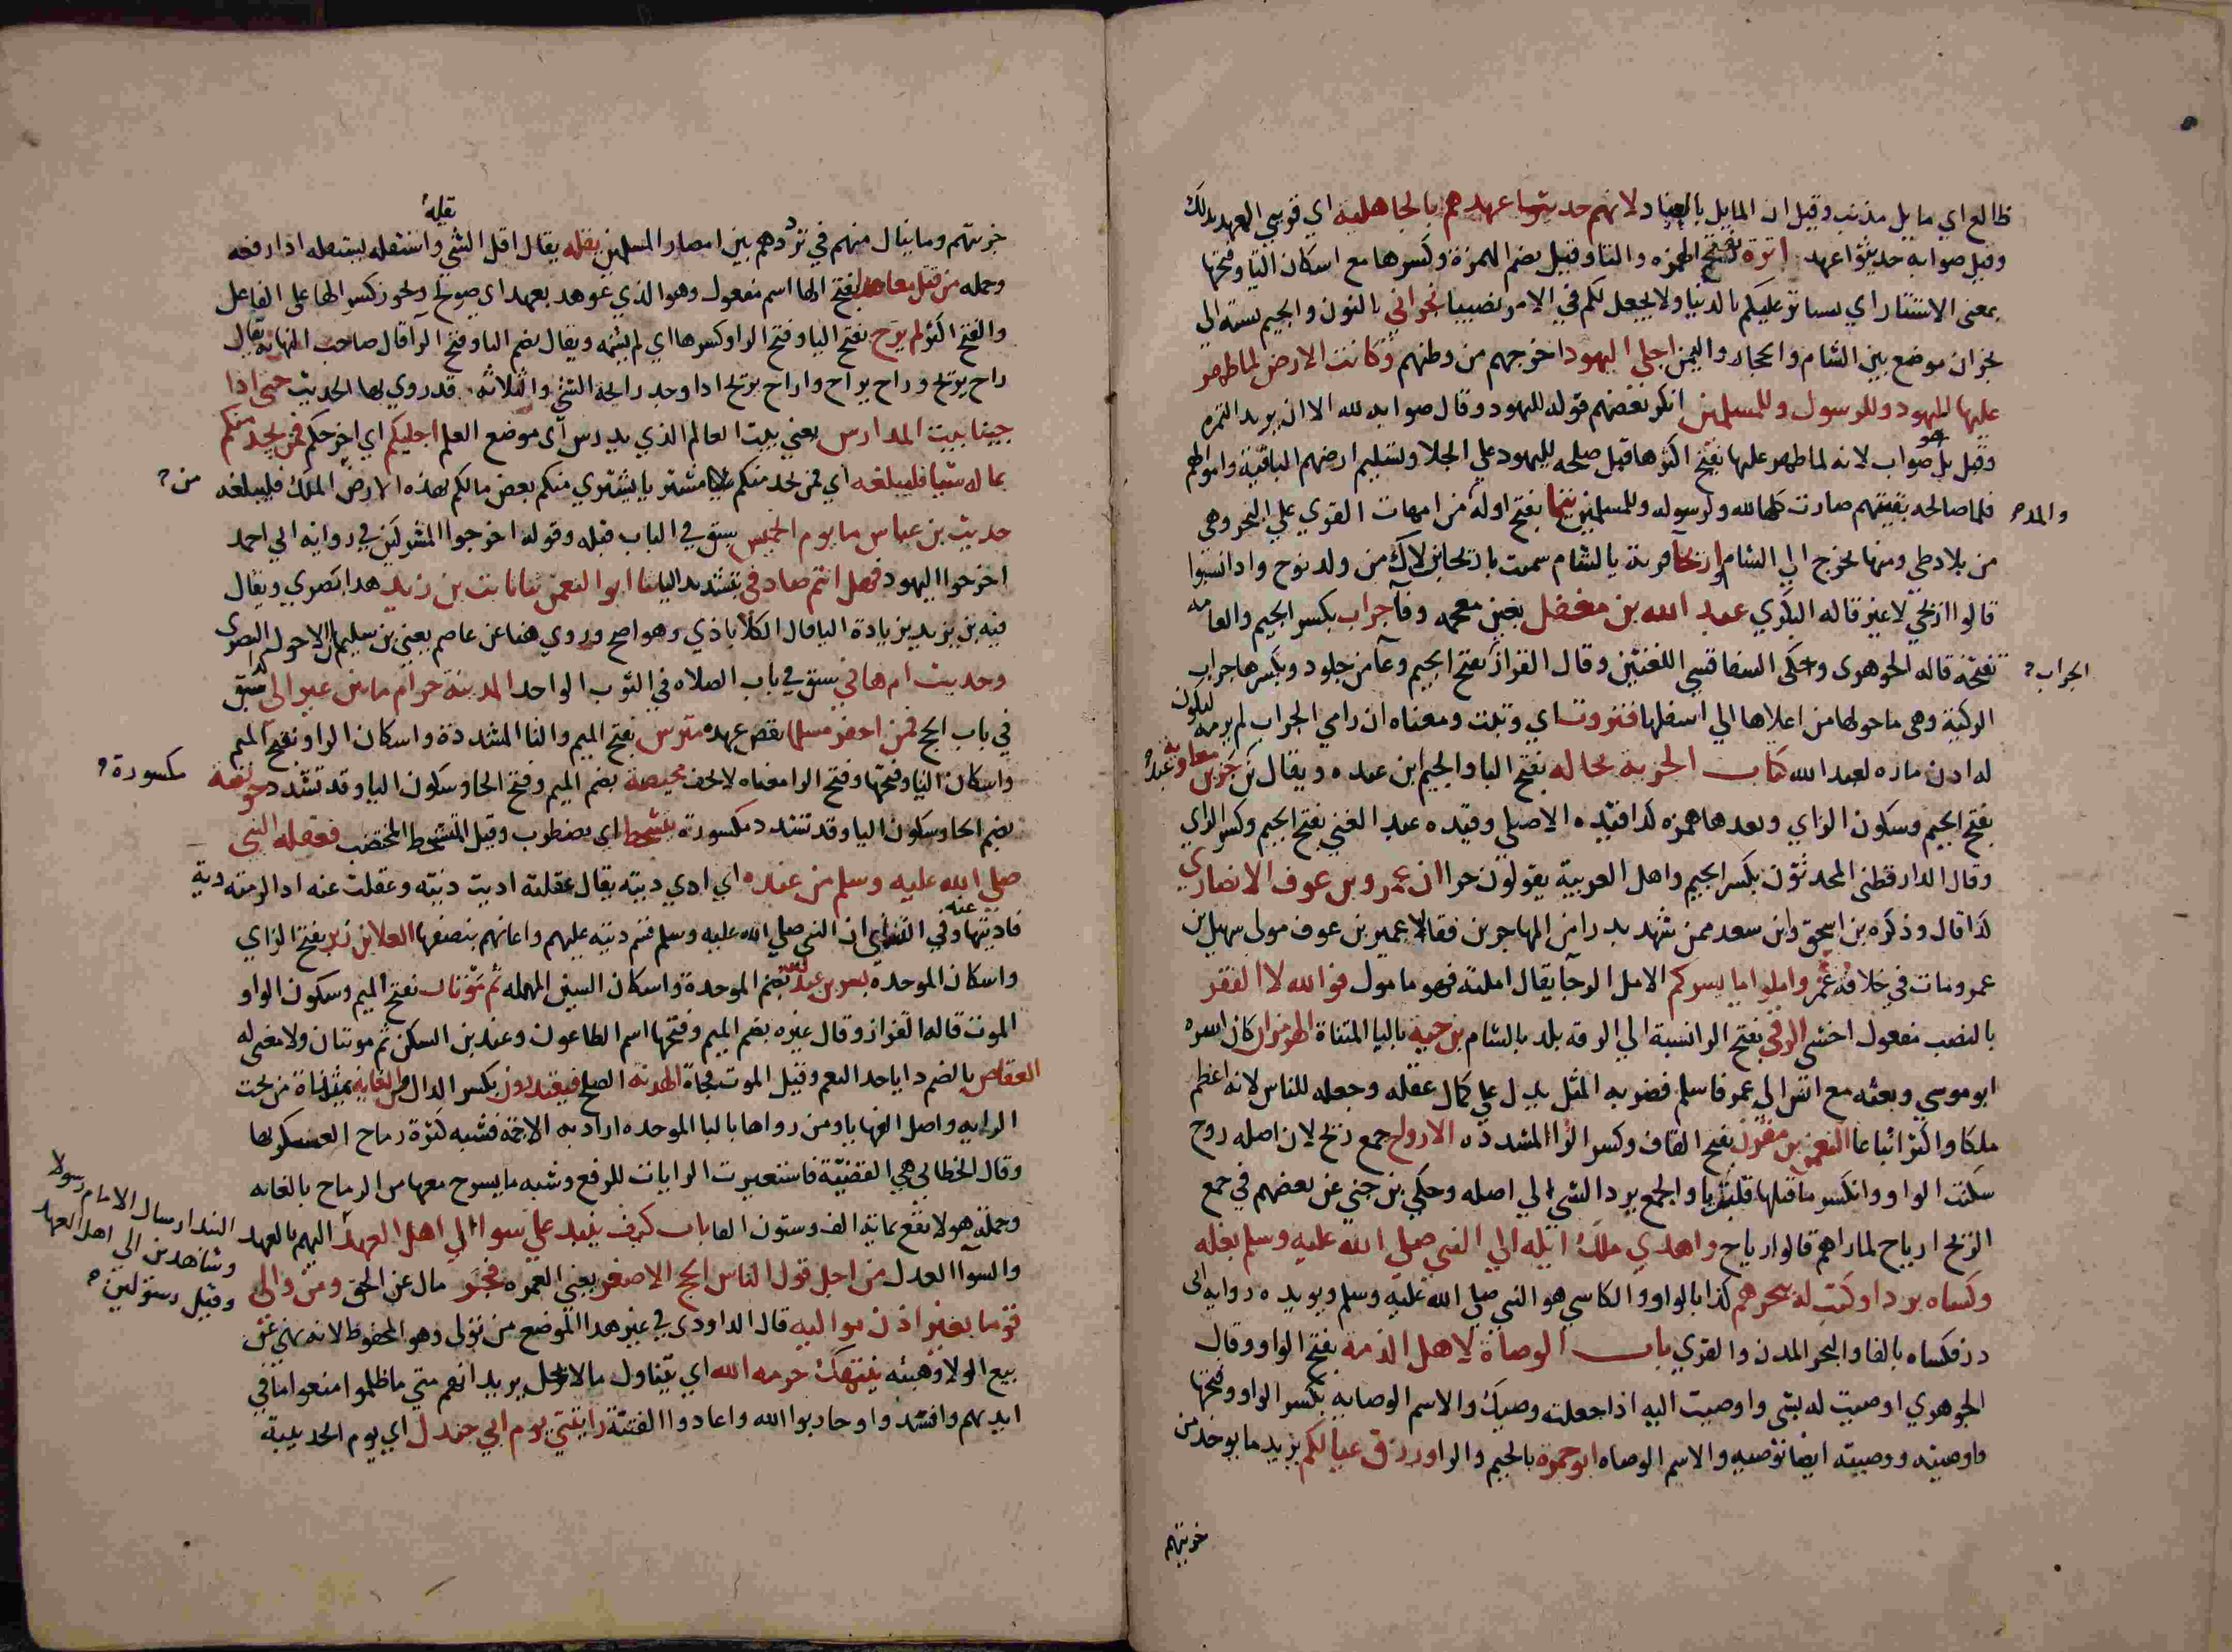 ظالع اي مايل مذنب وقيل ان المايل بالضاد لانهم حديثوا عهدهم بالجاهلية اي قريبي العهد بذلك
وقيل صوابه حديثوا عهد اثرة بفتح الهمزه والثا وقيل بضم الهمزة وكسرها مع اسكان الثا وفتحها
بمعنى الاستئثار اي يستاثر عليكم بالدنيا ولا يجعل لكم في الامر نصيبا نجراني بالنون والجيم نسبة الي
نجران موضع بين الشام والحجاز واليمن اجلى اليهود اخرجهم من وطنهم وكانت الارض لما ظهر
عليها لليهود وللرسول وللمسلمين انكر بعضهم قوله لليهود وقال صوابه لله الا ان يريد الثمرة
وقيل بل هو صواب لانه لما ظهر عليها بفتح اكثرها قبل صلحه لليهود علي الجلا وتسليم ارضهم الباقية واموالهم
فلما صالحه بقيتهم صارت كلها لله ولرسوله وللمسلمين تيما بفتح اوله من امهات القري علي البحر وهى
من بلاد طي ومنها يخرج الي الشام اريحا قرية بالشام سميت باريحا بن لامك من ولد نوح واذا نسبوا
قالوا اريحي لا غير قاله البكري عبد الله بن مغفل بغين معجمه وفا جراب بكسر الجيم والعامه
تفتحه قاله الجوهرى وحكى السفاقسي اللغتين وقال القزاز بفتح الجيم وعا من جلود وبكسرها جراب
الجراب
الركية وهى ما حولها من اعلاها الي اسفلها فنزوت اي وثبت ومعناه ان رامي الجراب لم يرمه ليكون
له اذن ماره لعبد الله كتاب الجزية بجاله بفتح البا والجيم ابن عبده ويقال بن عبد جزء بن معاوية
بفتح الجيم وسكون الزاي وبعدها همزه كذا قيده الاصيلي وقيده عبد الغني بفتح الجيم وكسر الزاي
وقال الدارقطنى المحدثون بكسر الجيم واهل العربية يقولون جزا ان عمرو بن عوف الانصاري
كذا قال وذكره بن اسحق وابن سعد ممن شهد بدرا من المهاجرين فقالا عمير بن عوف مولى سهيل بن
عمرو مات في خلافة عمر واملوا ما يسركم الامل الرجا يقال املته فهو مامول فوالله لا الفقر
بالنصب مفعول اخشى الرقي بفتح الرا نسبة الي الرقه بلد بالشام بن حية باليا المثناة الهرمزان كان اسره
ابو موسي وبعثه مع انس الي عمر فاسلم فضربه المثل يدل علي كمال عقله وجعله للناس لانه اعظم
ملكا واكثر اتباعا النعمن بن مقرن بفتح القاف وكسر الرا المشدده الارواح جمع ريح لان اصله روح
سكنت الواو وانكسر ما قبلها قلبت يا والجمع يرد الشى الي اصله وحكي بن جني عن بعضهم في جمع
الريح ارياح لما راهم قالوا رياح واهدي ملك ايلة الي النبي صلي الله عليه وسلم بغله
وكساه بردا وكتب له ببحرهم كذا بالواو والكاسي هو النبي صلي الله عليه وسلم ويويده رواية ابى
ذر فكساه بالفا والبحر المدن والقري باب الوصاة لاهل الذمة بفتح الواو وقال
الجوهري اوصيت له بشى واوصيت اليه اذا جعلته وصيك والاسم الوصاية بكسر الواو وفتحها
واوصيته ووصيته ايضا توصيه والاسم الوصاه ابو جمرة بالجيم والرا ورزق عيالكم يريد ما يوخذ من
خرسهم وما ينال منهم في ترددهم بين امصار المسلمين يقله يقال اقل الشي واستقله يستقله اذا رفعه
وحمله من قتل معاهدا بفتح الها اسم مفعول وهو الذي عوهد بعهد اي صولح ويجوز كسر الها على الفاعل
والفتح اكثر لم يرح بفتح اليا وفتح الرا وكسرها اي لم يشمه ويقال بضم اليا وفتح الرا قال صاحب النهاية يقال
راح يريح وراح يراح واراح يريح اذا وجد رايحة الشي والثلاثه قد روي بها الحديث حتى اذا
جينا بيت المدارس يعني بيت العالم الذي يدرس اى موضع العلم اجليكم اي اخرجكم فمن يجد منكم
بماله شيا فليبلغه اي فمن يجد منكم مشتريا يشتري منكم بعض مالكم بهذه الارض الملك فليبلغه
من
حديث بن عباس ما يوم الخميس سبق في الباب قبله وقوله اخرجوا المشركين في رواية ابي احمد
اخرجوا اليهود فهل انتم صادقي بتشديد اليا ثنا ابو النعمن ثنا ثابت بن زيد هذا بصري ويقال
فيه بن يزيد بزيادة اليا قال الكلاباذي وهو اصح وروي هنا عن عاصم يعني بن سليمان الاحول البصرى
وحديث ام هاني سبق في باب الصلاه في الثوب الواحد المدينة حرام ما بين عير الى كذا سبق
في باب الحج فمن اخفر مسلما نقض عهده مترس بفتح الميم والتا المشددة واسكان الرا وبفتح الميم
واسكان التا وفتحها وفتح الرا معناه لا تخف محيصة بضم الميم وفتح الحا وسكون اليا وقد تشدد حويصة
مكسورة
بضم الحا وسكون اليا وقد تشدد مكسورة يتشحط اي يضطرب وقيل المتشحط المختضب فعقله النبى
صلى الله عليه وسلم من عنده اي ادي ديته يقال عقلته اديت ديته وعقلت عنه اذا لزمته دية
فاديتها عنه وفي النسائي ان النبي صلي الله عليه وسلم قسم ديته عليهم واعانهم بنصفها العلا بن زبر بفتح الزاي
واسكان الموحدة بسر بن عبيد الله بضم الموحدة واسكان السين المهمله ثم موتان بفتح الميم وسكون الواو
الموت قاله القزاز وقال غيره بضم الميم وفتحها اسم الطاعون وعند بن السكن ثم موتتان ولا معنى له
العقاص بالضم دا ياخذ النعم وقيل الموت فجاة الهدنه الصلح فيغدرون بكسر الدال غاية بمثناة من تحت
الرايه واصل الغاية ومن رواها بالبا الموحده اراد به الاجمة فشبه كثرة رماح العسكر بها
وقال الخطابي هي الغيضة فاستعيرت الرايات للرفع وشبه ما يسرح معها من الرماح بالغابه
وجملة هولا تسع ماية الف وستون الفا باب كيف ينبذ علي سوا الي اهل العهد اليهم بالعهد
النبذ ارسال الامام رسولا
وشاهدين الي اهل العهد
وقيل رسولين
والسوا العدل من اجل قول الناس الحج الاصغر يعني العمره فجر مال عن الحق ومن والى
قوما بغير اذن مواليه قال الداودى في غير هذا الموضع من تولى وهو المحفوظ لانه نهي عن
بيع الولا وهبته ينتهك حرمه الله اي يتناول ما لا يحل يريد انهم متي ما ظلموا منعوا ما في
ايديهم وافسدوا وحاربوا الله واعادوا الفتنة رايتني يوم ابي جندل اي يوم الحديبية